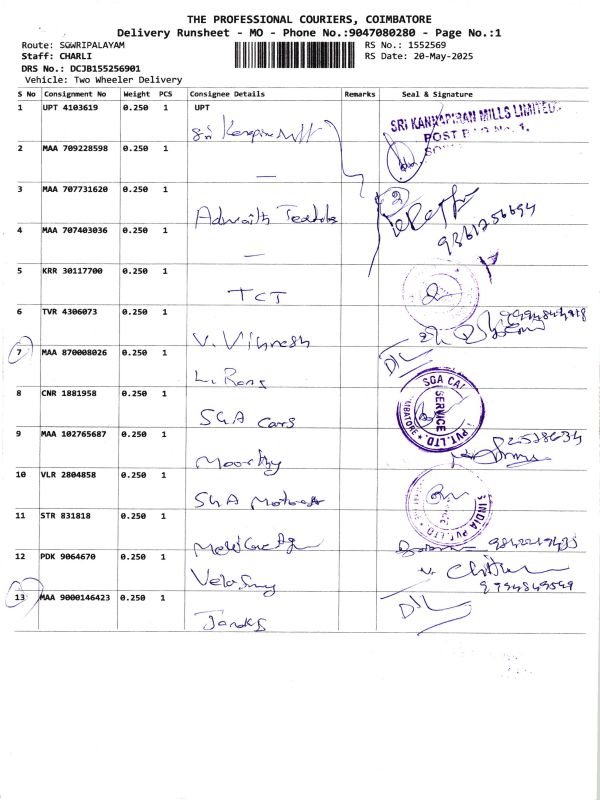 THE PROFESSIONAL COURIERS, COIMBATORE
Delivery Runsheet - MO - Phone No.:9047080280 - Page No.:1
Route: SOWRIPALAYAM
RS No.: 1552569
Staff: CHARLI
RS Date: 20-May-2025
DRS No.: DCJB155256901
Vehicle: Two Wheeler Delivery
S No Consignment No Weight PCS Consignee Details Remarks Seal & Signature
1 UPT 4103619 0.250 1 UPT
SRI KANNAPIRAN MILLS LIMITED
POST BAG No. 1,
2 MAA 709228598 0.250 1
—
3 MAA 707731620 0.250 1
2
Adwaith Textiles
9361256694
4 MAA 707403036 0.250 1
—
5 KRR 30117700 0.250 1
TCT
6 TVR 4306073 0.250 1
V. Vignesh
7 MAA 870008026 0.250 1
D/L
8 CNR 1881958 0.250 1
SGA Cars
SGA CAR
SERVICE
PVT. LTD
9 MAA 102765687 0.250 1
Moorthy
10 VLR 2804858 0.250 1
SGA Motors
INDIA PVT. LTD
11 STR 831818 0.250 1
12 PDK 9064670 0.250 1
Velusamy
9794849549
13 MAA 9000146423 0.250 1
D/L